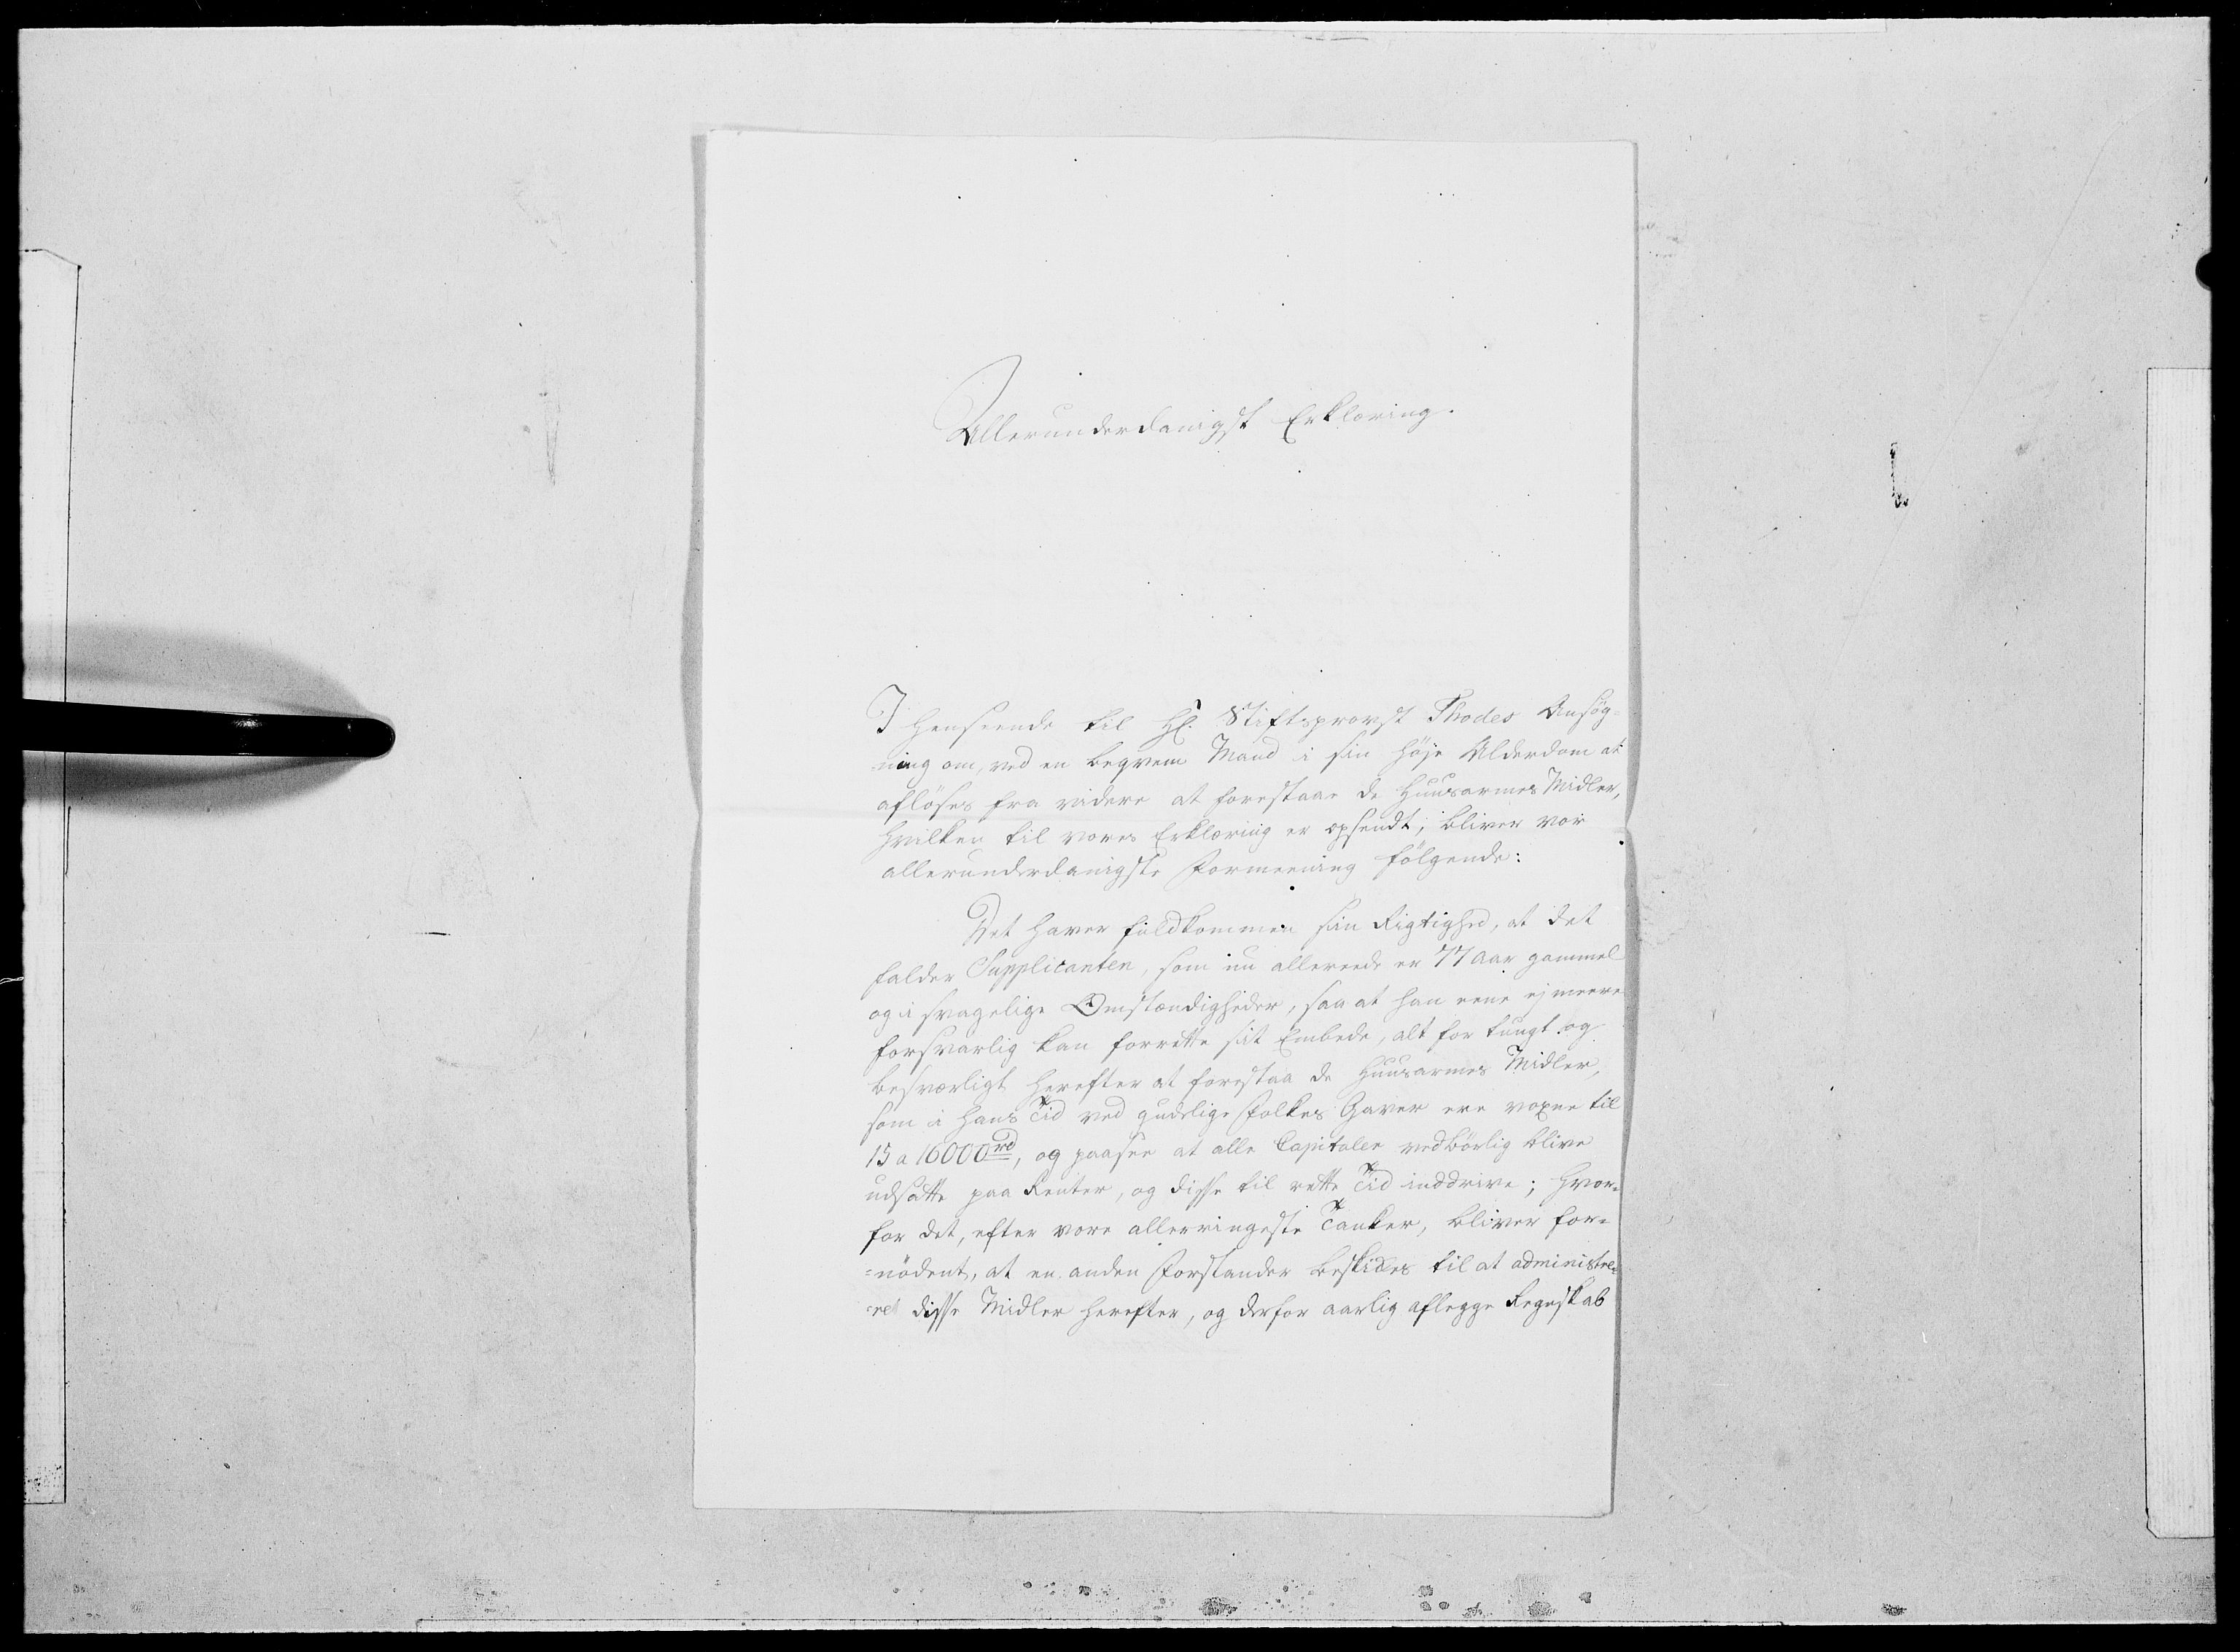 Allerunderdanigst Erklæring.
I Henseende til Hl. Stiftsprovst Thodes Ansøg-
ning om, ved en beqvem Mand i sin høje Alderdom at
afløses fra videre at forestaae de Huusarmes Midler,
hvilken til vores Erklæring er opsendt, bliver vor
allerunderdanigste Formeening følgende:
Det haver fuldkommen sin Rigtighed, at det
falder Supplicanten, som nu allereede er 77 Aar gammel
og i svagelige Omstændigheder, saa at han eene ej meere
forsvarlig kan forrette sit Embede, alt for tungt og
besværligt herefter at forestaa de Huusarmes Midler,
som i hans Tid ved gudelige Folkes Gaver ere voxne til
15 a 16000 rd, og paasee at alle Capitaler vedbørlig blive
udsatte paa Renter, og disse til rette Tid inddrive; hvor-
for det, efter vore allerringeste Tanker, bliver for-
=nødent, at en anden Forstander beskikkes til at administre-
=re disse Midler herefter, og derfor aarlig aflegge Regnskab